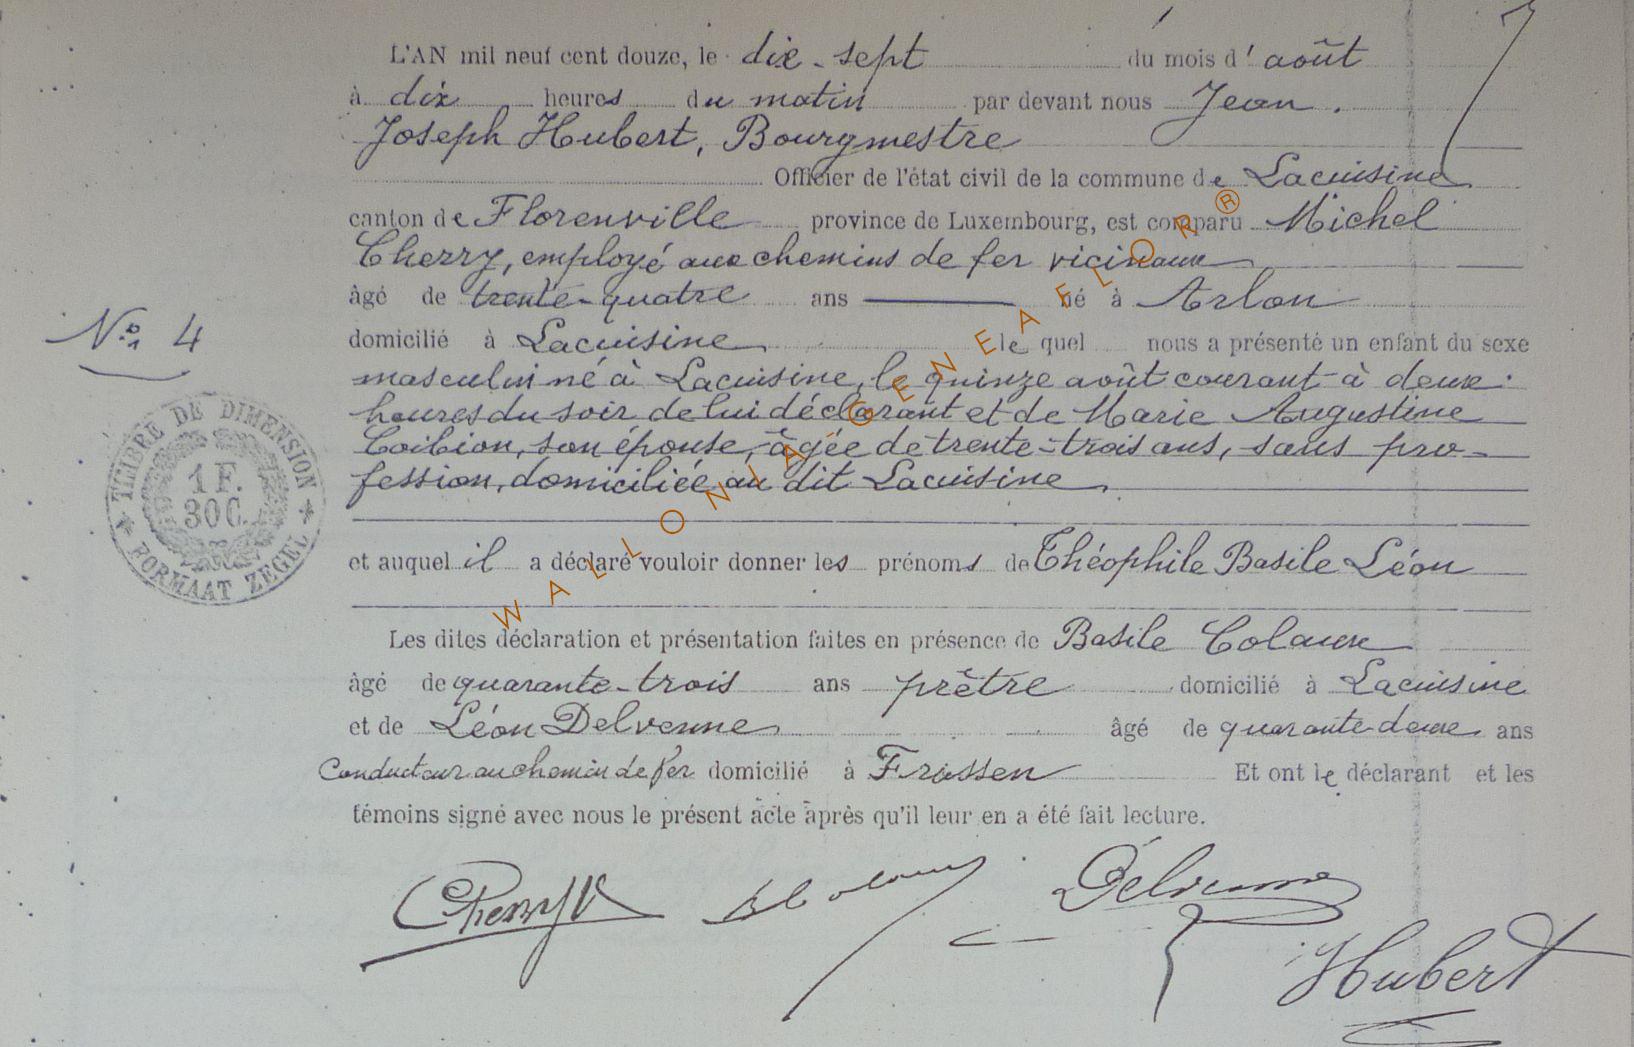 L'AN mil neuf cent douze, le dix-sept du mois d'août
à dix heures du matin par devant nous Jean
Joseph Hubert, Bourgmestre
Officier de l'état civil de la commune de Lacuisine
canton de Florenville province de Luxembourg, est comparu Michel
Cherry, employé aux chemins de fer vicinaux
âgé de trente-quatre ans né à Arlon
domicilié à Lacuisine lequel nous a présenté un enfant du sexe
No 4
masculin né à Lacuisine, le quinze août courant à deux
heures du soir de lui déclarant et de Marie Augustine
Coibion, son épouse, âgée de trente-trois ans, sans pro-
fession, domiciliée au dit Lacuisine
TIMBRE DE DIMENSION
1 F.
30 C.
FORMAAT ZEGEL
et auquel il a déclaré vouloir donner les prénoms de Théophile Basile Léon
Les dites déclaration et présentation faites en présence de Basile Colaux
âgé de quarante-trois ans prêtre domicilié à Lacuisine
et de Léon Delvenne âgé de quarante-deux ans
Conducteur au chemin de fer domicilié à Frassen Et ont le déclarant et les
témoins signé avec nous le présent acte après qu'il leur en a été fait lecture.
Cherry B Colaux Delvenne
Hubert
WALLONIA GENEAFLOR ®